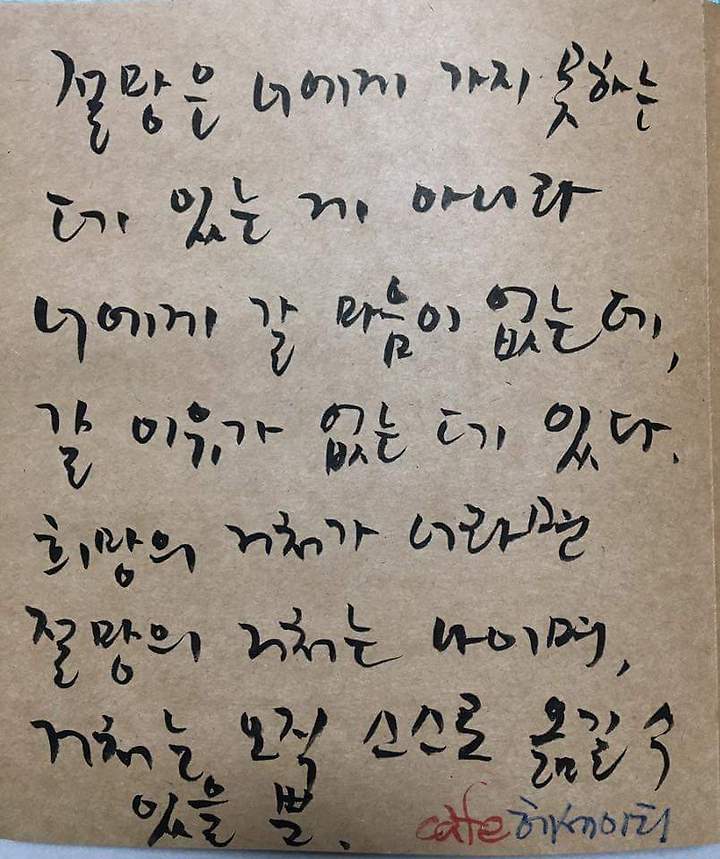 절망은 너에게 가지 못하는
데 있는 게 아니라
너에게 갈 마음이 없는데,
갈 이유가 없는 데 있다.
희망의 거처가 너라면
절망의 거처는 나이며,
거처는 오직 스스로 옮길 수
있을 뿐.
cafe 헤세이티